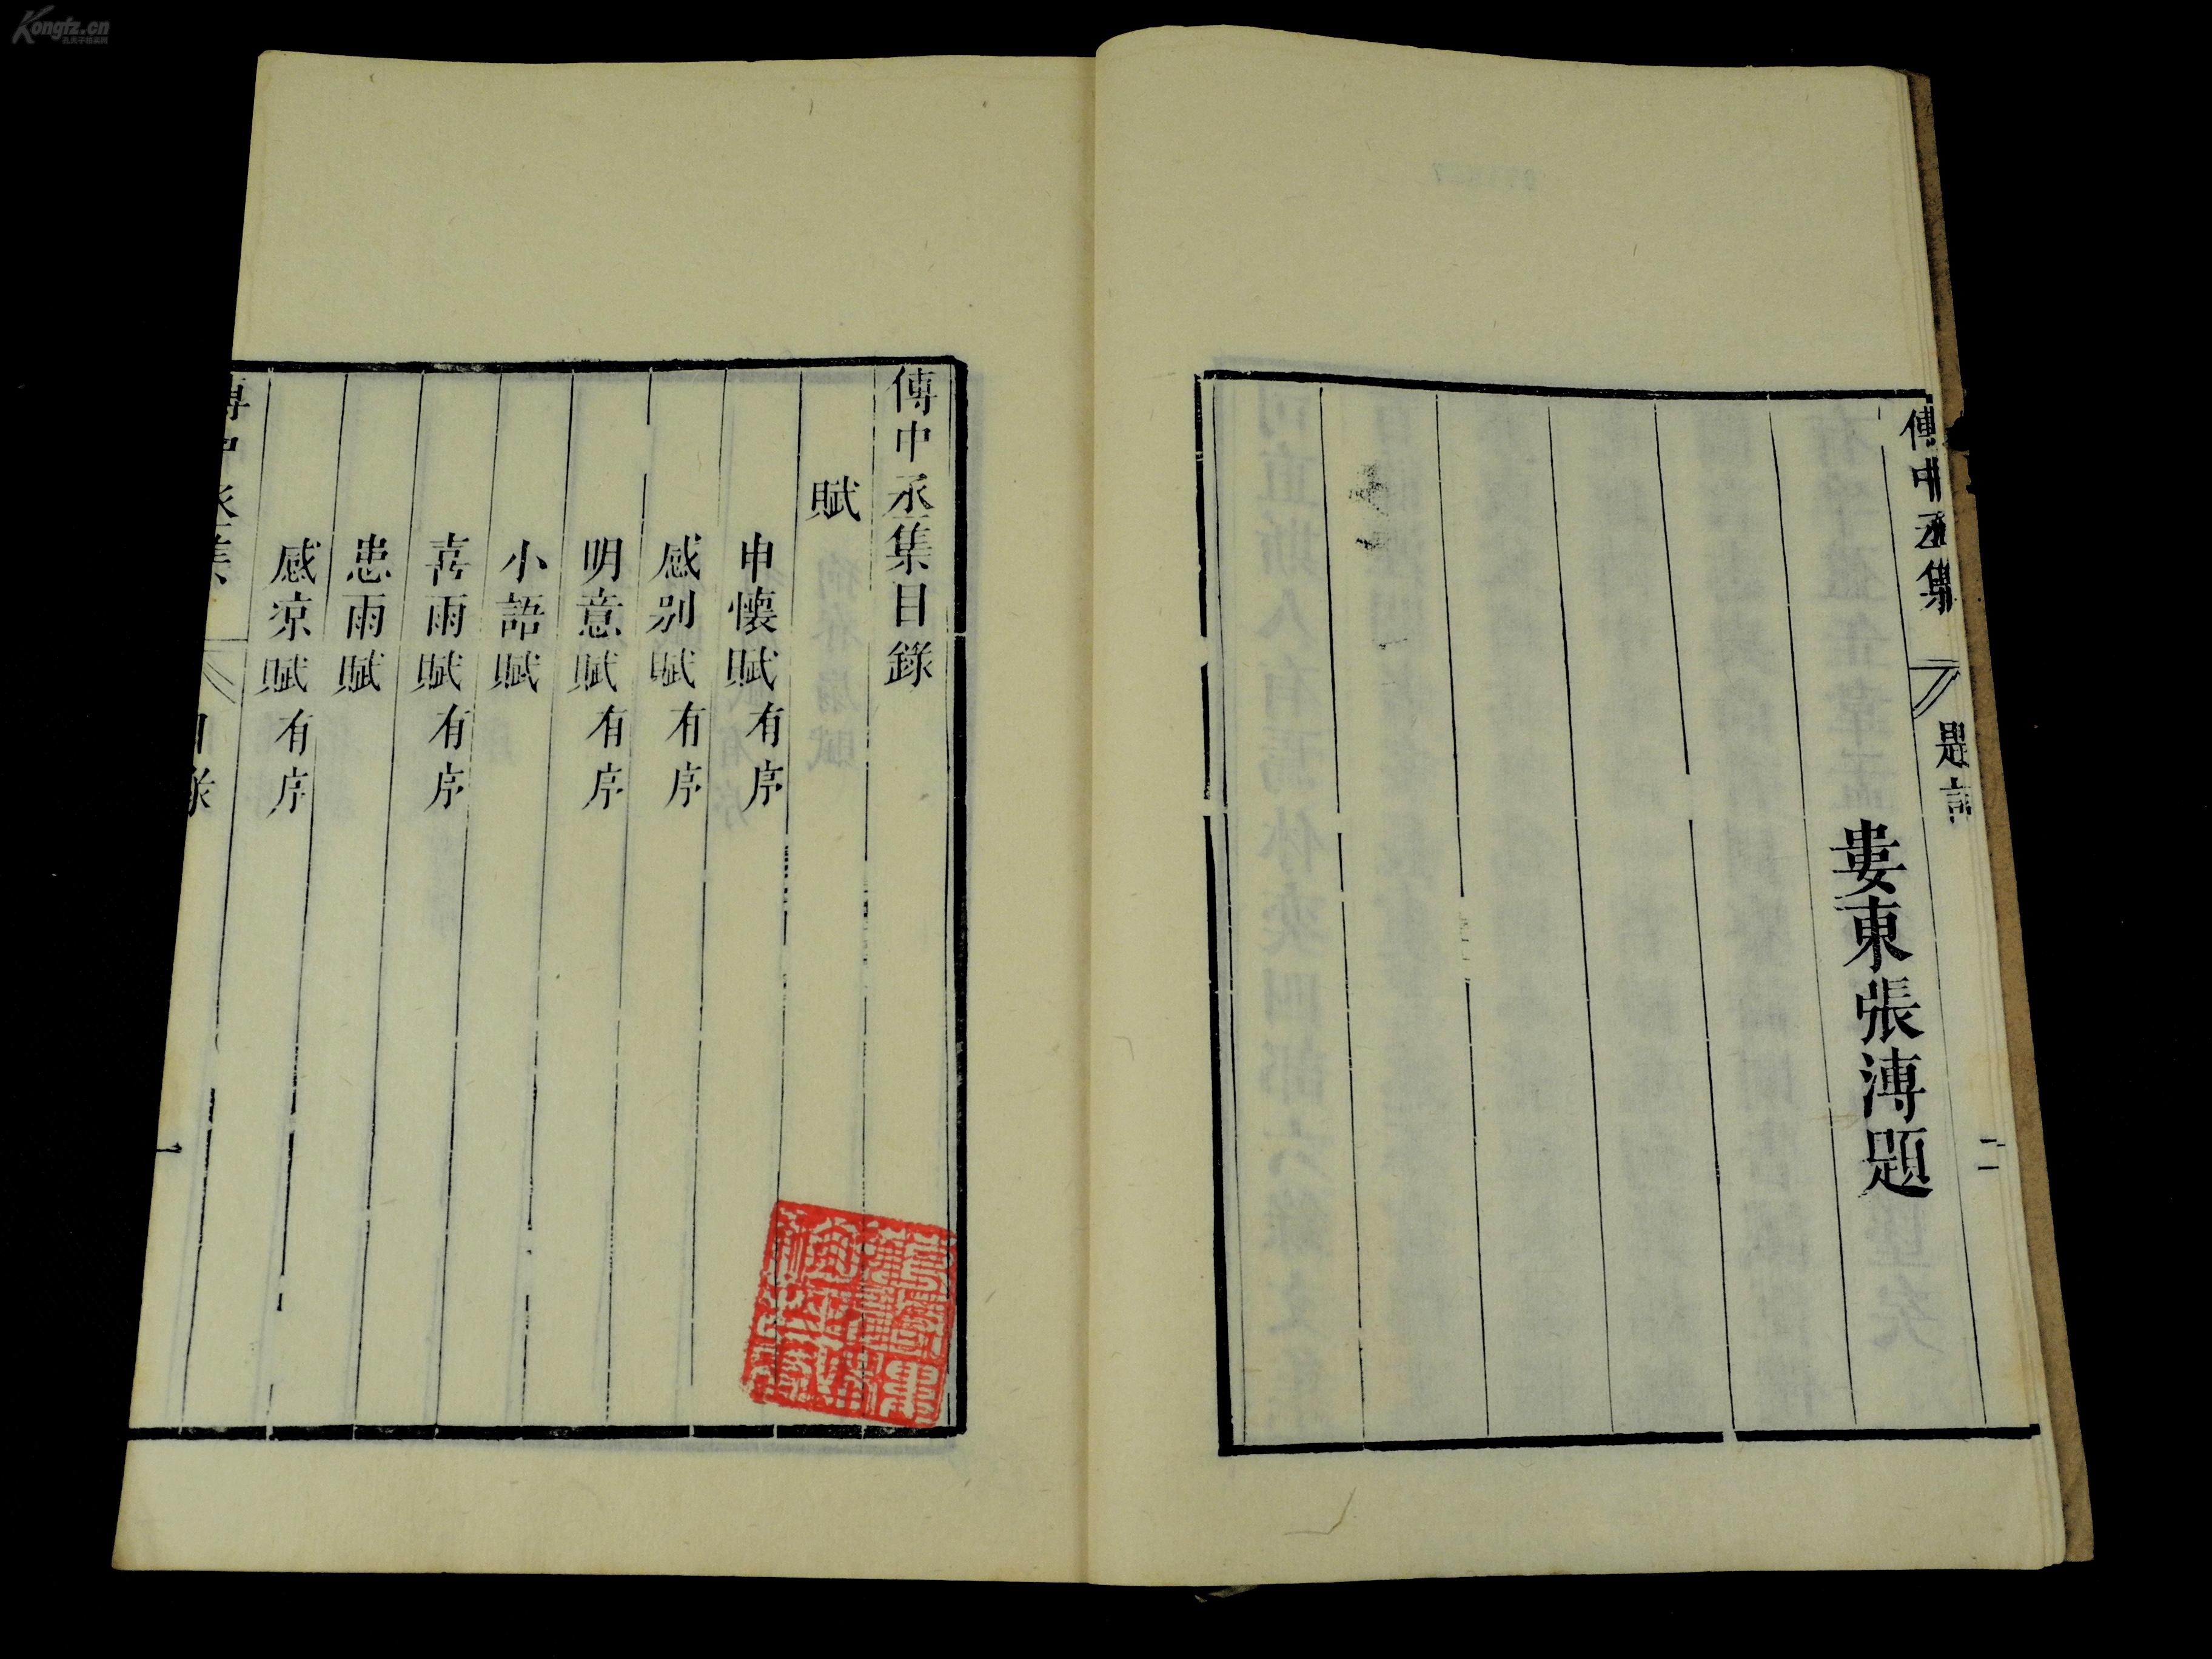 Kongfz.cn
傅中丞集
題詞
二
婁東張溥題
傅中丞集目錄
賦
申懷賦有序
感別賦有序
明意賦有序
小語賦
喜雨賦有序
患雨賦
感涼賦有序
傅中丞集
目錄
一